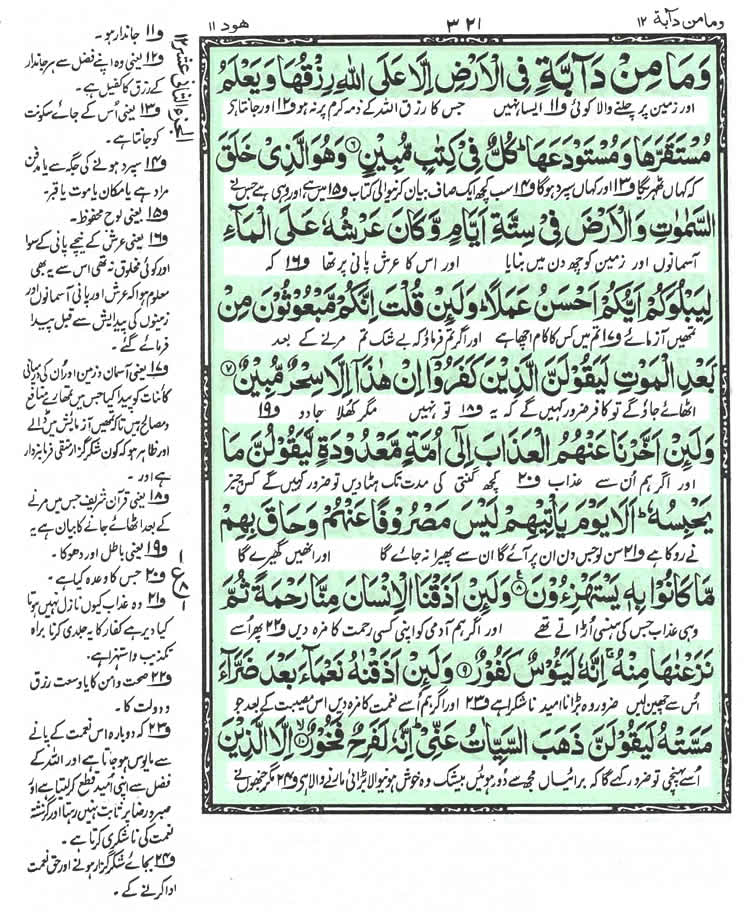 ومامن دآبة ١٢
٣٢١
هود ١١
وَمَا مِنْ دَآبَّةٍ فِی الْاَرْضِ اِلَّا عَلَی اللّٰهِ رِزْقُهَا وَیَعْلَمُ
اور زمین پر چلنے والا کوئی و۱۱ ایسا نہیں جس کا رزق اللہ کے ذمہ کرم پر نہ ہو و۱۲ اور جانتا ہے
مُسْتَقَرَّهَا وَمُسْتَوْدَعَهَا ؕ كُلٌّ فِیْ كِتٰبٍ مُّبِیْنٍ ﴿۶﴾ وَهُوَ الَّذِیْ خَلَقَ
کہ کہاں ٹھہرے گا و۱۳ اور کہاں سپرد ہوگا و۱۴ سب کچھ ایک صاف بیان کرنیوالی کتاب و۱۵ میں ہے اور وہی ہے جس نے
السَّمٰوٰتِ وَالْاَرْضَ فِیْ سِتَّةِ اَیَّامٍ وَّكَانَ عَرْشُهٗ عَلَی الْمَآءِ
آسمانوں اور زمین کو چھ دن میں بنایا اور اس کا عرش پانی پر تھا و۱۶ کہ
لِیَبْلُوَكُمْ اَیُّكُمْ اَحْسَنُ عَمَلًا ؕ وَلَئِنْ قُلْتَ اِنَّكُمْ مَّبْعُوْثُوْنَ مِنْ
تمھیں آزمائے و۱۷ تم میں کس کا کام اچھا ہے اور اگر تم فرماؤ کہ بے شک تم مرنے کے بعد
بَعْدِ الْمَوْتِ لَیَقُوْلَنَّ الَّذِیْنَ كَفَرُوْۤا اِنْ هٰذَاۤ اِلَّا سِحْرٌ مُّبِیْنٌ ﴿۷﴾
اٹھائے جاؤ گے تو کافر ضرور کہیں گے کہ یہ و۱۸ تو نہیں مگر کھلا جادو و۱۹
وَلَئِنْ اَخَّرْنَا عَنْهُمُ الْعَذَابَ اِلٰۤی اُمَّةٍ مَّعْدُوْدَةٍ لَّیَقُوْلُنَّ مَا
اور اگر ہم اُن سے عذاب و۲۰ کچھ گنتی کی مدت تک ہٹا دیں تو ضرور کہیں گے کس چیز
یَحْبِسُهٗ ؕ اَلَا یَوْمَ یَاْتِیْهِمْ لَیْسَ مَصْرُوْفًا عَنْهُمْ وَحَاقَ بِهِمْ
نے روکا ہے و۲۱ سن لو جس دن ان پر آئے گا ان سے پھیرا نہ جائے گا اور انھیں گھیرے گا
مَّا كَانُوْا بِهٖ یَسْتَهْزِءُوْنَ ﴿۸﴾ وَلَئِنْ اَذَقْنَا الْاِنْسَانَ مِنَّا رَحْمَةً ثُمَّ
وہی عذاب جس کی ہنسی اڑاتے تھے اور اگر ہم آدمی کو اپنی کسی رحمت کا مزہ دیں و۲۲ پھر اُسے
نَزَعْنٰهَا مِنْهُ ۚ اِنَّهٗ لَیَئُوْسٌ كَفُوْرٌ ﴿۹﴾ وَلَئِنْ اَذَقْنٰهُ نَعْمَآءَ بَعْدَ ضَرَّآءَ
اُس سے چھین لیں ضرور وہ بڑا ناامید ناشکرا ہے و۲۳ اور اگر ہم اُسے نعمت کا مزہ دیں اس مصیبت کے بعد جو
مَسَّتْهُ لَیَقُوْلَنَّ ذَهَبَ السَّیِّاٰتُ عَنِّیْ ؕ اِنَّهٗ لَفَرِحٌ فَخُوْرٌ ﴿۱۰﴾ اِلَّا الَّذِیْنَ
اُسے پہنچی تو ضرور کہے گا کہ برائیاں مجھ سے دور ہوئیں بیشک وہ خوش ہونیوالا بڑائی مارنے والا ہے و۲۴ مگر جنھوں نے
الجزء الثانی عشر ۱۲
و۱۱ جاندار ہو ۔
و۱۲ یعنی وہ اپنے فضل سے ہر جاندار
کے رزق کا کفیل ہے ۔
و۱۳ یعنی اُس کے جائے سکونت
کو جانتا ہے ۔
و۱۴ سپرد ہونے کی جگہ سے یا مدفن
مراد ہے یا مکان یا موت یا قبر ۔
و۱۵ یعنی لوح محفوظ ۔
و۱۶ یعنی عرش کے نیچے پانی کے سوا
اور کوئی مخلوق نہ تھی اس سے یہ بھی
معلوم ہوا کہ عرش اور پانی آسمانوں اور
زمینوں کی پیدایش سے قبل پیدا
فرمائے گئے ۔
و۱۷ یعنی آسمان و زمین اور اُن کی درمیانی
کائنات کو پیدا کیا جس میں تمھارے منافع
و مصالح ہیں تاکہ تمھیں آزمایش میں ڈالے
اور ظاہر ہو کہ کون شکر گزار متقی فرمانبردار
ہے اور ۔
و۱۸ یعنی قرآن شریف جس میں مرنے
کے بعد اٹھائے جانے کا بیان ہے یہ
و۱۹ یعنی باطل اور دھوکا ۔
و۲۰ جس کا وعدہ کیا ہے ۔
و۲۱ وہ عذاب کیوں نازل نہیں ہوتا
کیا دیر ہے کفار کا یہ جلدی کرنا براہ
تکذیب و استہزا ہے ۔
و۲۲ صحت و امن کا یا وسعت رزق
و دولت کا ۔
و۲۳ کہ دوبارہ اس نعمت کے پانے
سے مایوس ہو جاتا ہے اور اللہ کے
فضل سے اپنی امید قطع کر لیتا ہے اور
صبر و رضا پر ثابت نہیں رہتا اور گزشتہ
نعمت کی ناشکری کرتا ہے ۔
و۲۴ بجائے شکر گزار ہونے اور حق نعمت
ادا کرنے کے ۔
ع